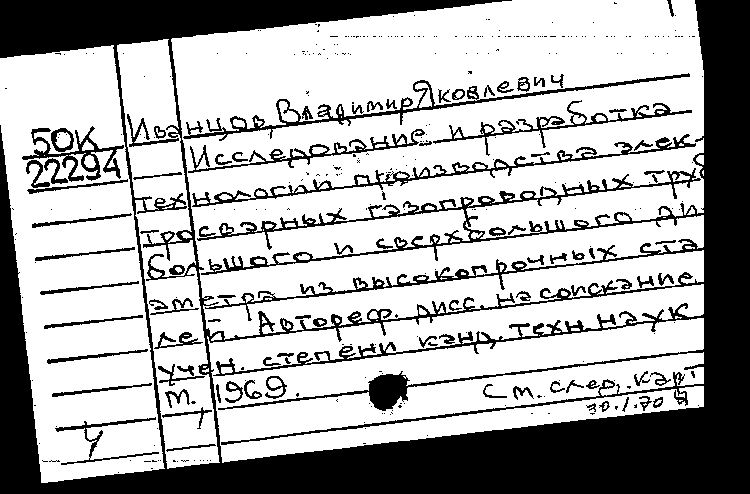 Иванцов, Владимир Яковлевич
50К
22294
Исследование и разработка
технологии производства элек-
тросварных газопроводных труб
большого и сверхбольшого ди-
аметра из высокопрочных ста
лей. Автореф. дисс. на соискание
учен. степени канд. техн. наук
т. 1969.
См. след. карт
30.1.70